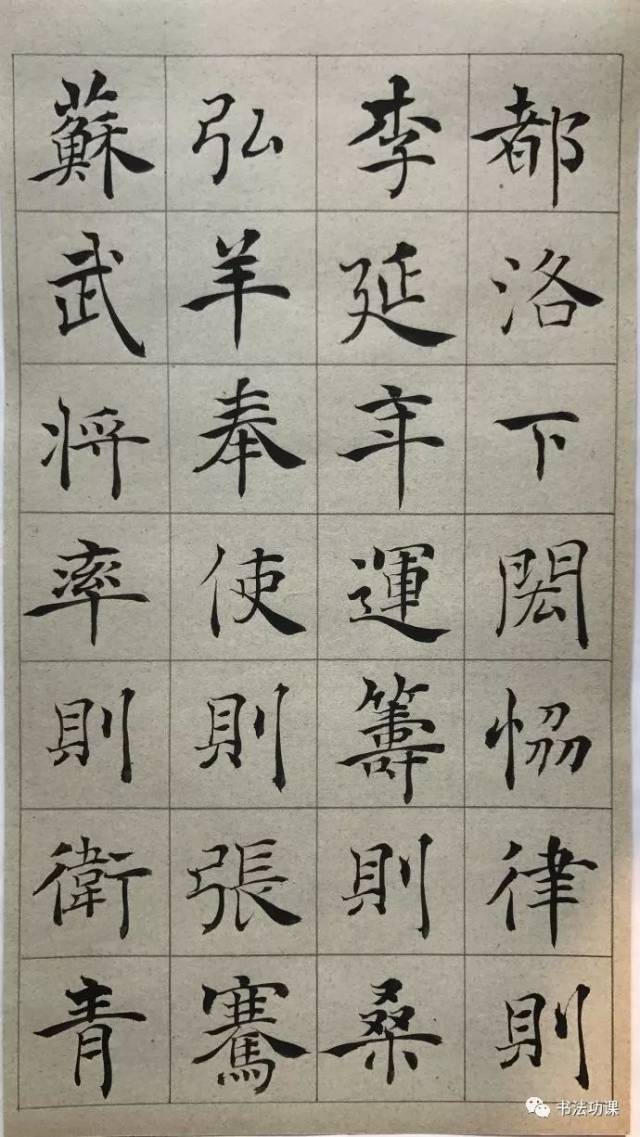 都洛下閎恊律則
李延年運籌則桑
弘羊奉使則張騫
蘇武將率則衛青
书法功课